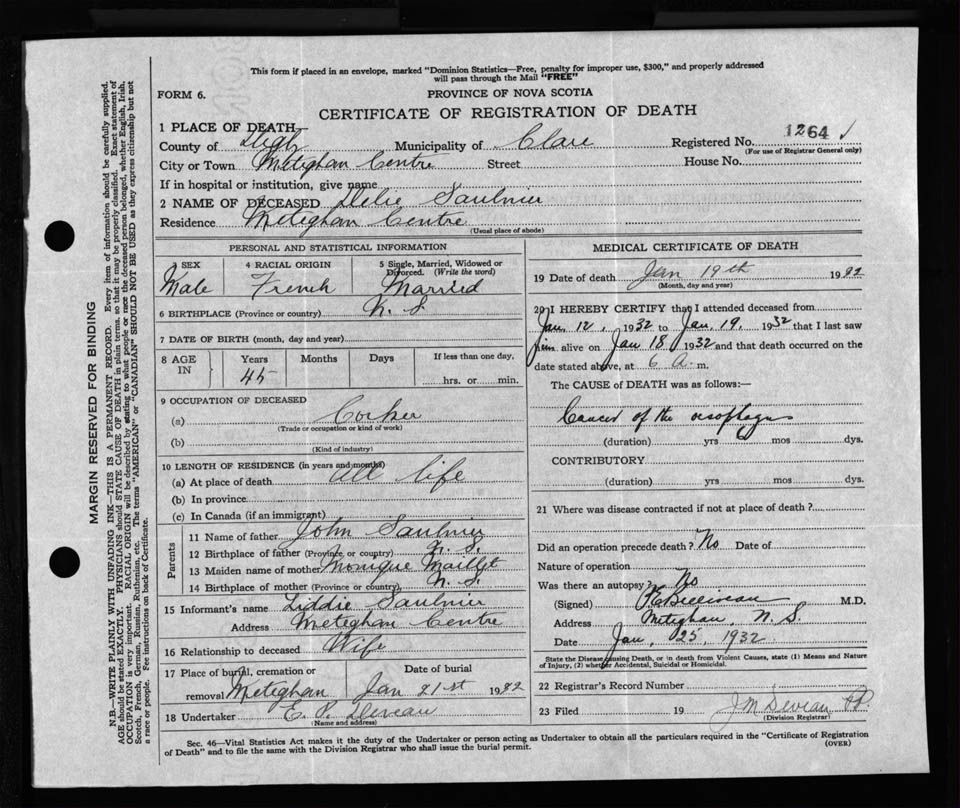 This form if placed in an envelope, marked "Dominion Statistics—Free, penalty for improper use, $300," and properly addressed
will pass through the Mail "FREE"
FORM 6.
PROVINCE OF NOVA SCOTIA
CERTIFICATE OF REGISTRATION OF DEATH
1 PLACE OF DEATH—
County of Digby Municipality of Clare Registered No. 1264
(For use of Registrar General only)
City or Town Meteghan Centre Street House No.
If in hospital or institution, give name
2 NAME OF DECEASED Delie Saulnier
Residence Meteghan Centre
(Usual place of abode)
PERSONAL AND STATISTICAL INFORMATION
3 SEX 4 RACIAL ORIGIN 5 Single, Married, Widowed or
Divorced. (Write the word)
Male French Married
6 BIRTHPLACE (Province or country) N. S
7 DATE OF BIRTH (month, day and year)
8 AGE IN Years Months Days If less than one day,
45 hrs. or min.
9 OCCUPATION OF DECEASED
(a)
(Trade or occupation or kind of work)
(b)
(Kind of industry)
10 LENGTH OF RESIDENCE (in years and months)
(a) At place of death All life
(b) In province
(c) In Canada (if an immigrant)
Parents
11 Name of father John Saulnier
12 Birthplace of father (Province or country) N. S.
13 Maiden name of mother Monique Maillet
14 Birthplace of mother (Province or country) N. S
15 Informant's name Liddie Saulnier
Address Meteghan Centre
16 Relationship to deceased Wife
17 Place of burial, cremation or Date of burial
removal Meteghan Jan 21st 1932
18 Undertaker E. P. Deveau
(Name and address)
MEDICAL CERTIFICATE OF DEATH
19 Date of death Jan 19th 1932
(Month, day and year)
20 I HEREBY CERTIFY that I attended deceased from
Jan. 12, 1932 to Jan. 19, 1932 that I last saw
him alive on Jan 18, 1932 and that death occurred on the
date stated above, at 6 A. m.
The CAUSE OF DEATH was as follows:—
Cancer of the oesophagus
(duration) yrs mos dys.
CONTRIBUTORY
(duration) yrs. mos. dys.
21 Where was disease contracted if not at place of death?
Did an operation precede death? No Date of
Nature of operation
Was there an autopsy? No
(Signed) Belliveau M.D.
Address Meteghan, N. S.
Date Jan, 25, 1932
State the Disease causing Death, or in death from Violent Causes, state (1) Means and Nature
of Injury, (2) whether Accidental, Suicidal or Homicidal.
22 Registrar's Record Number
23 Filed 19 J M Deveau
(Division Registrar)
Sec. 46—Vital Statistics Act makes it the duty of the Undertaker or person acting as Undertaker to obtain all the particulars required in the "Certificate of Registration
of Death" and to file the same with the Division Registrar who shall issue the burial permit.
(OVER)
MARGIN RESERVED FOR BINDING
N.B.—WRITE PLAINLY WITH UNFADING INK—THIS IS A PERMANENT RECORD. Every item of information should be carefully supplied.
AGE should be stated EXACTLY. PHYSICIANS should STATE CAUSE OF DEATH in plain terms, so that it may be properly classified. Exact statement of
OCCUPATION is very important. RACIAL ORIGIN will be described by stating to what people or race the deceased person belonged, whether English, Irish,
Scotch, French, German, Russian, Ruthenian, etc. The terms "AMERICAN" or "CANADIAN" SHOULD NOT BE USED as they express citizenship but not
a race or people. Fee instructions on back of Certificate.